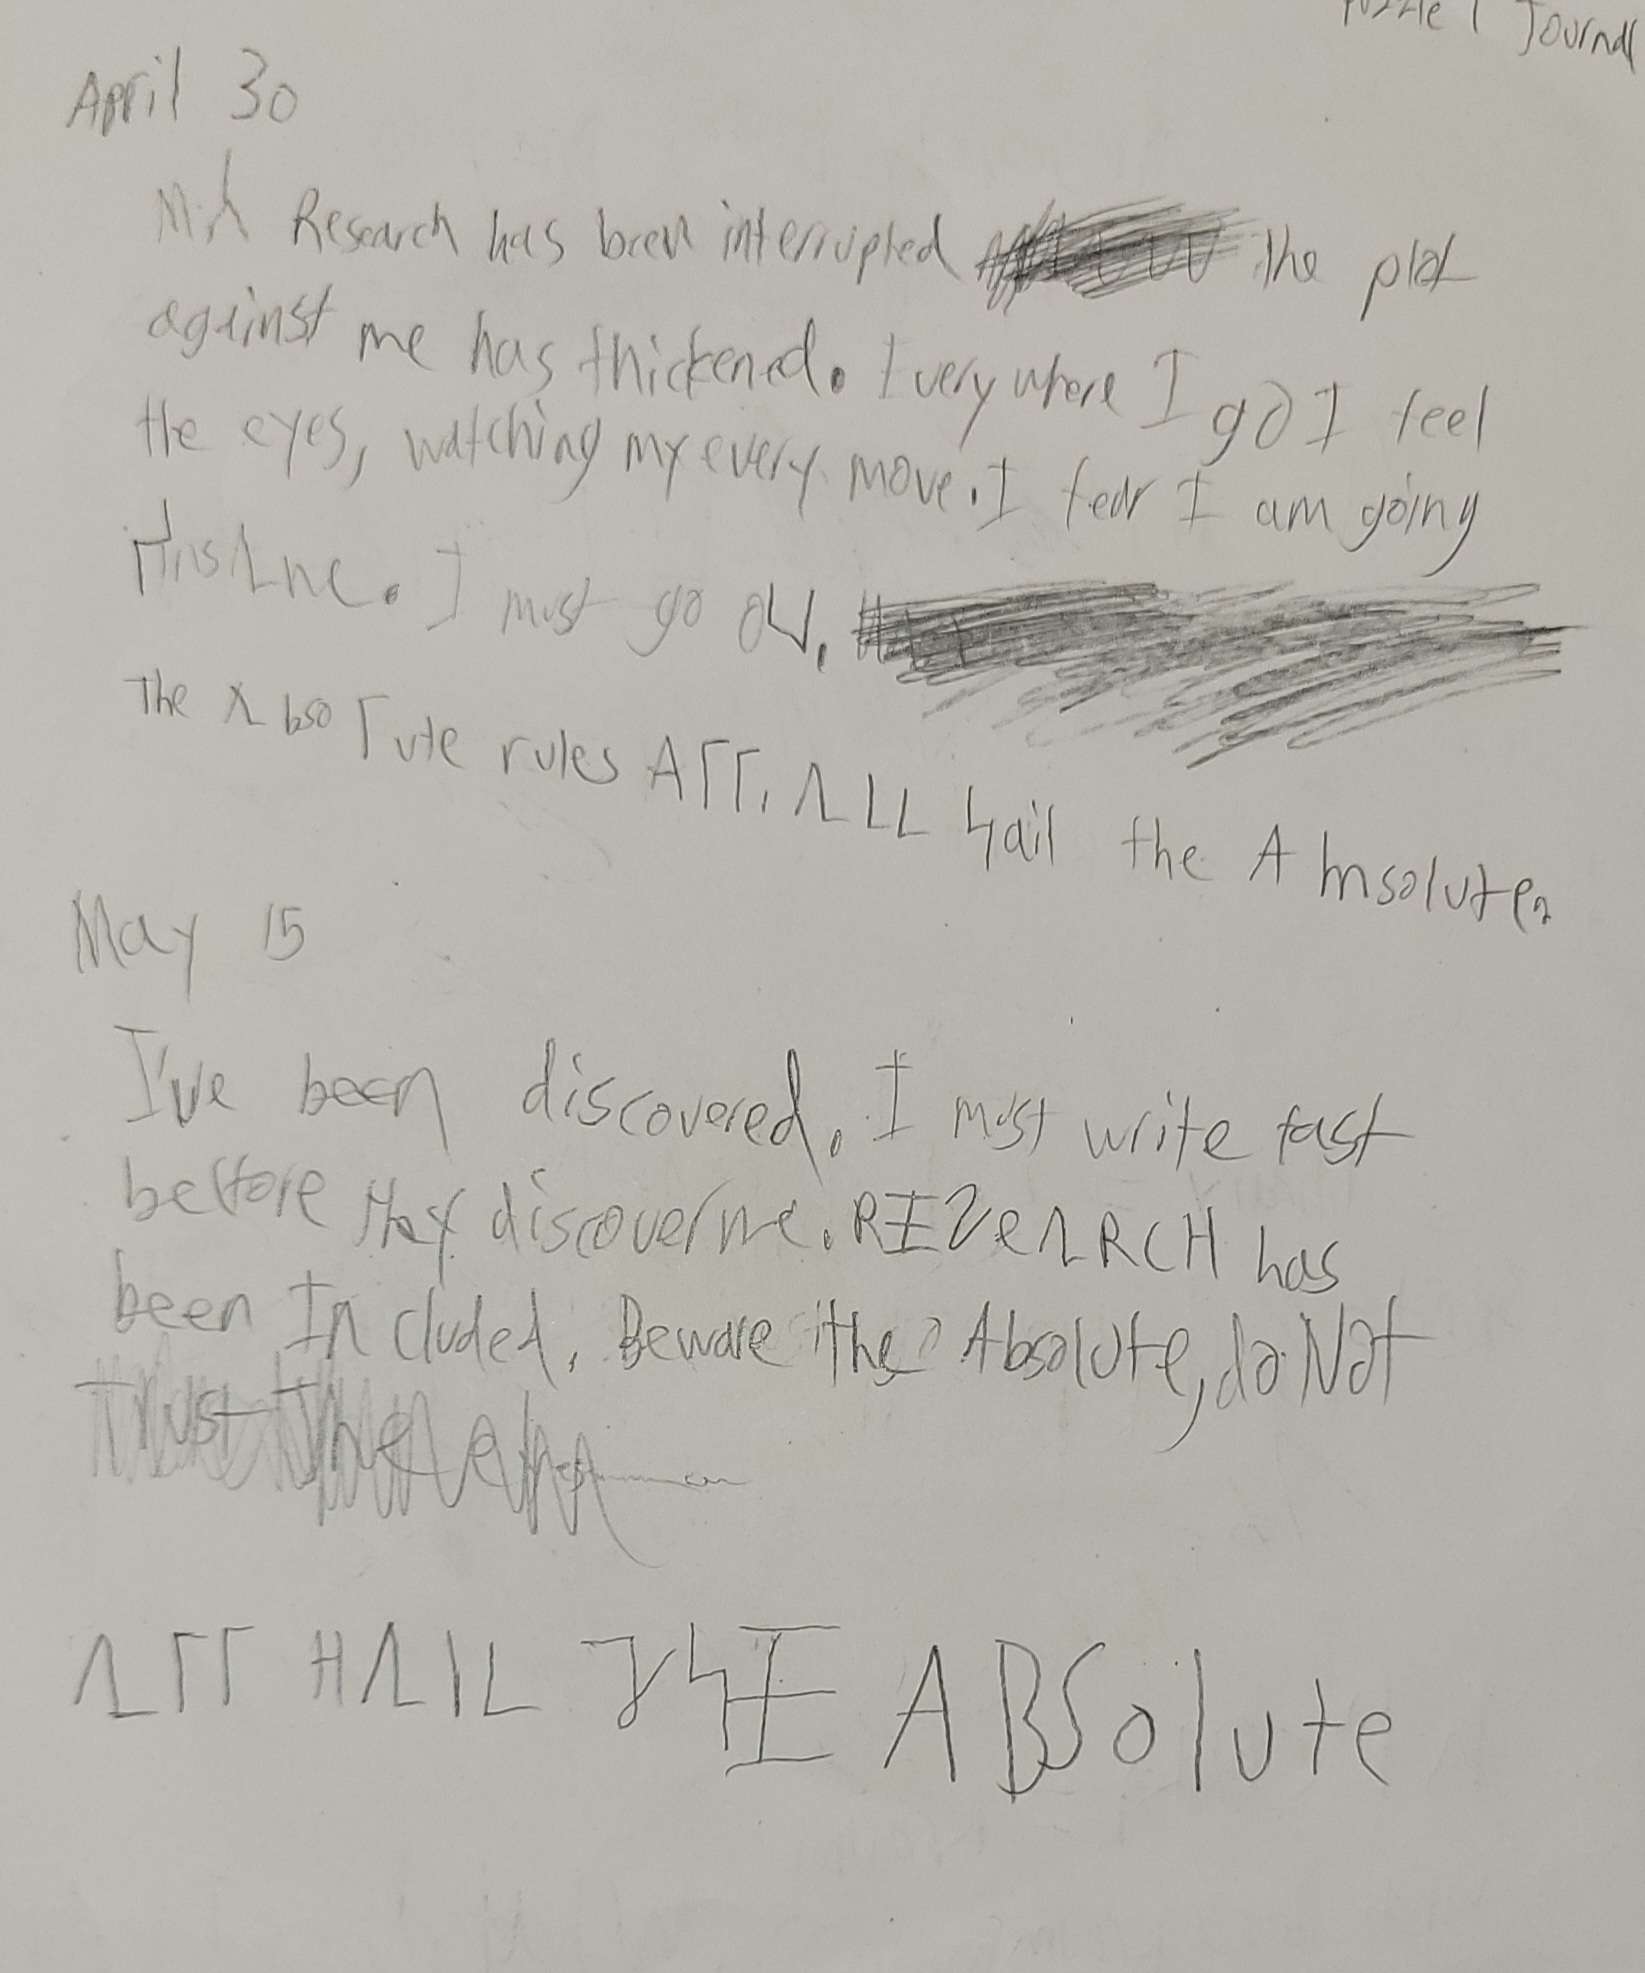 Puzzle 1 Journal
April 30
My Research has been interrupted the plot
against me has thickened. Everywhere I go I feel
the eyes, watching my every move. I fear I am going
I must go on.
The Λbso Γute rules AΓΓ. ΛLL Hail the Absolute.
May 15
I've been discovered. I must write fast
before they discover me. REZeΛRCH has
been In cluded, Beware the Absolute, do Not
Trust The
ΛΓΓ HΛIL THE ABSolute